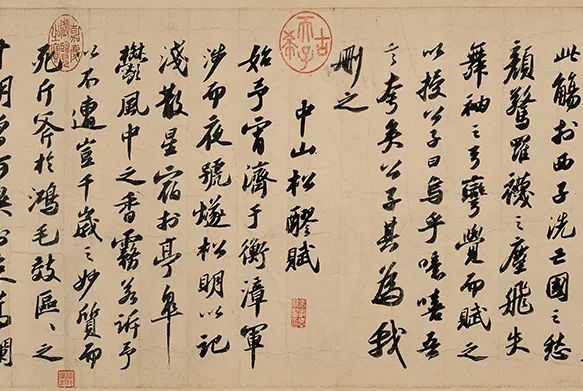 此觴於西子洗亡國之愁
顏驚羅襪之塵飛失
舞袖之弓彎覺而賦之
以授公子曰烏乎噫嘻吾
言夸矣公子其為我
刪之
中山松醪賦
始予宵濟于衡漳軍
涉而夜號燧松明以記
淺散星宿於亭皐
欝風中之香霧若訴予
以不遭豈千歲之妙質而
死斤斧於鴻毛效區、之
寸明曾何異於束蒿爛
古希天子
嘉慶御覽之寶